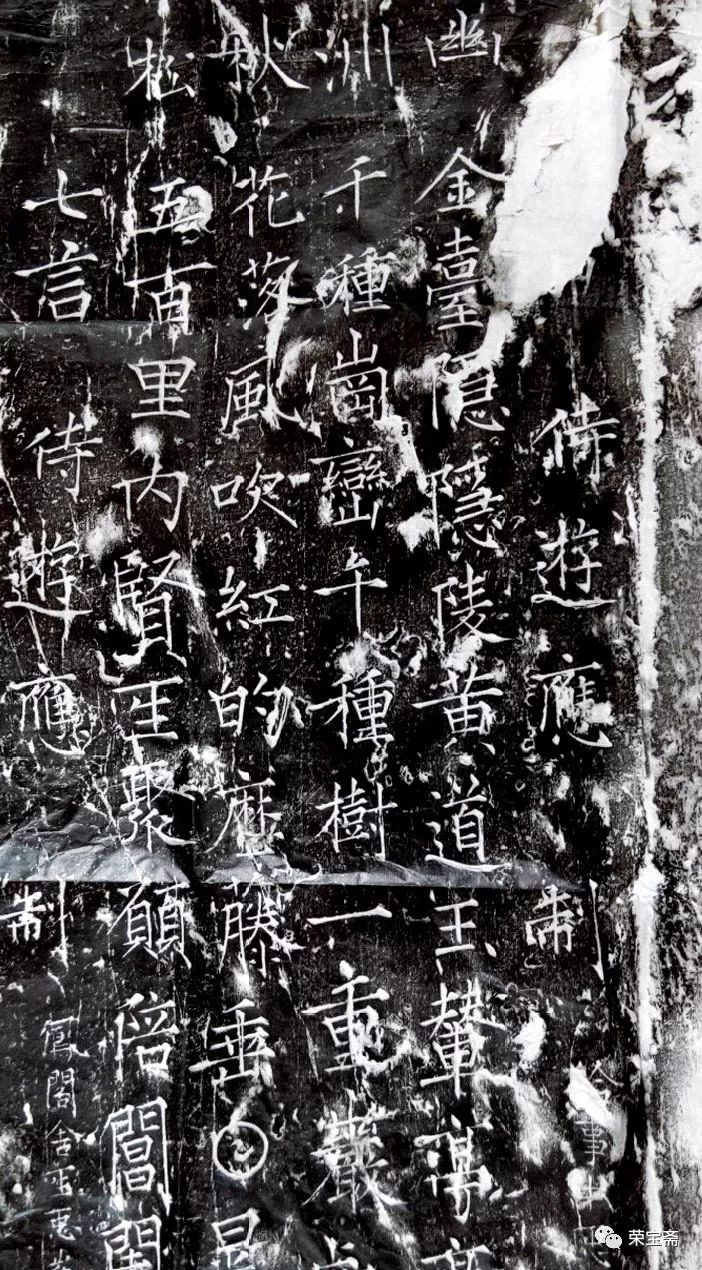 侍遊應制
幽 金臺隱隱陵黃道玉輦亭
洲 千種崗巒千種樹一重巖
秋 花落風吹紅的歷藤垂𡆠晃
崧 五百里內賢𤯔聚願陪閶闔
七言 侍遊應制 鳳閣舍𤯔𢘑
荣宝斋